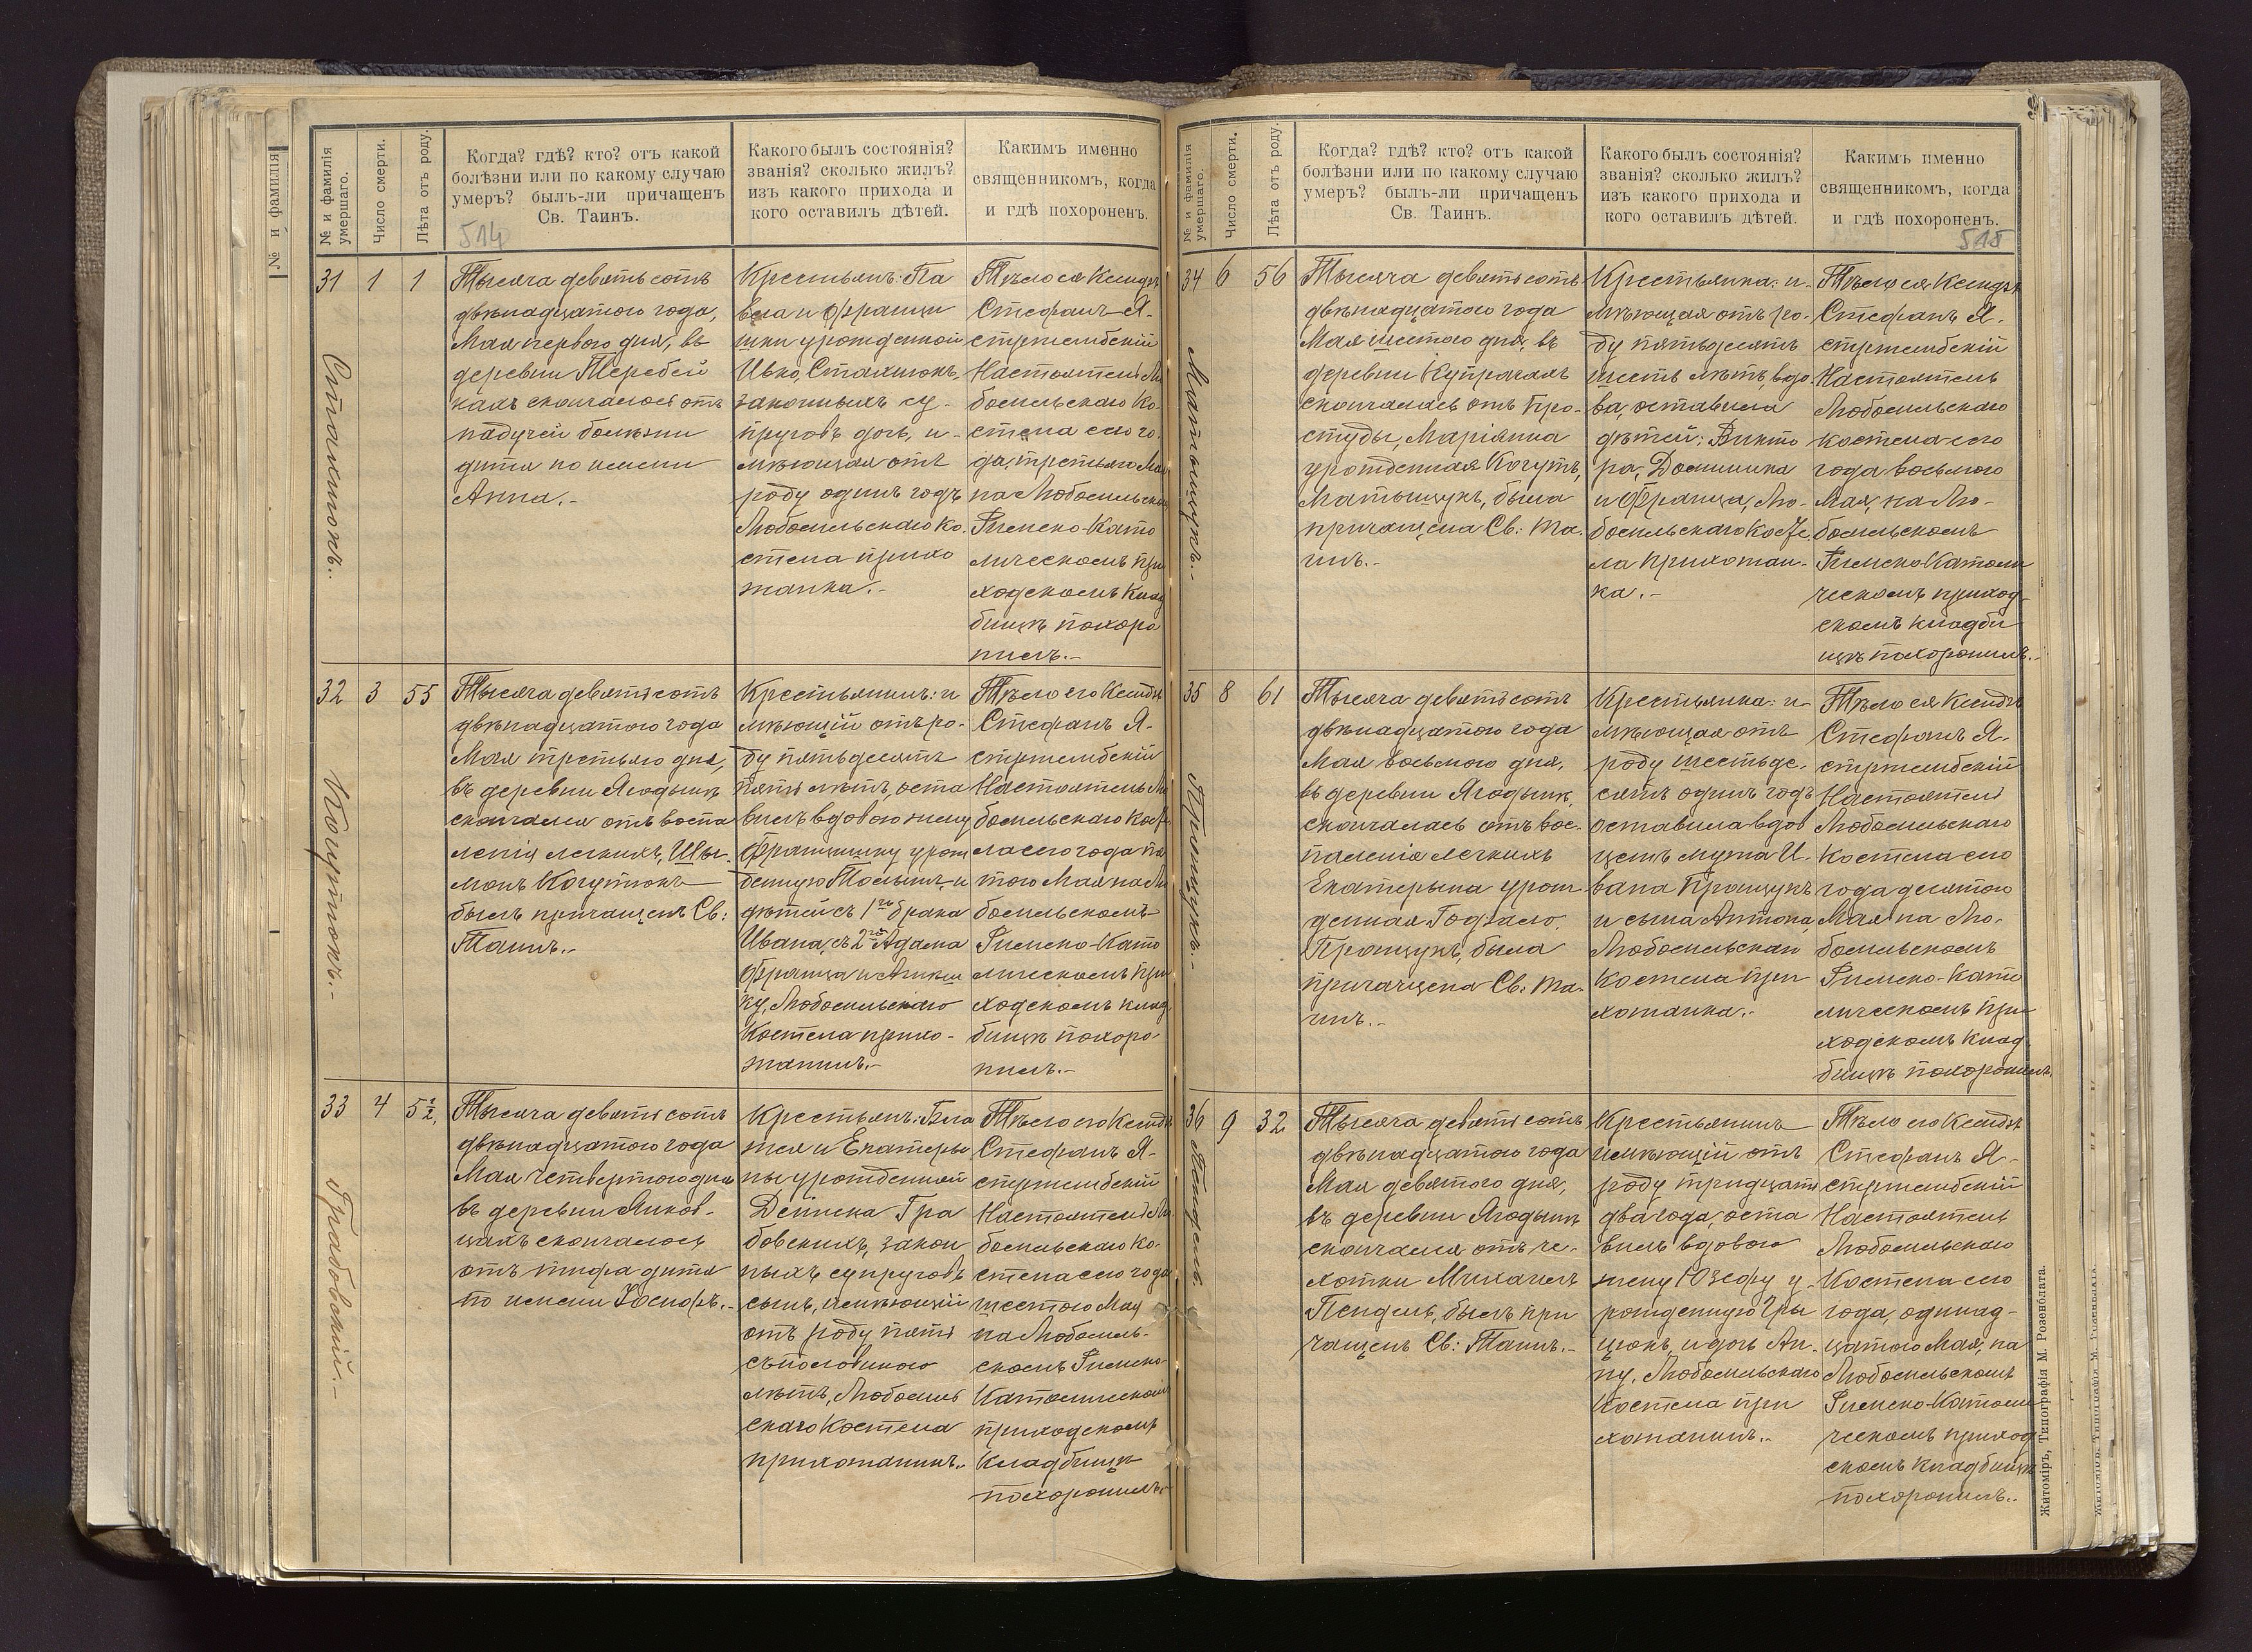 № и фамилія
№ и фамилія умершаго.
Число смерти.
Лѣта отъ роду.
Когда? гдѣ? кто? отъ какой
болѣзни или по какому случаю
умеръ? былъ-ли причащенъ
Св. Таинъ.
514
Какого былъ состоянія?
званія? сколько жилъ?
изъ какого прихода и
кого оставилъ дѣтей.
Какимъ именно
священникомъ, когда
и гдѣ похороненъ.
31
1
1
Стахнюкъ.
Тысяча девятьсотъ
двѣнадцатого года,
Мая первого дня, въ
деревни Теребей
кахъ скончалось отъ
падучей болѣзни
дитя по имени
Анна.-
Крестьянъ: Па
вла и Францы
шки урожденной
Ивко, Стахнюкъ,
законныхъ су-
пруговъ дочь, и-
мѣющая отъ
роду одинъ годъ,
Любомльскаго Ко.
стела прихо
жанка.-
Тѣло ея Ксендзъ
Стефанъ Я-
стржембскій
Настоятель Лю
бомльскаго Ко-
стела сего го.
да, третьяго Мая
на Любомльском
Римско-Като
лическомъ при
ходскомъ клад
бищѣ похоро
нилъ.-
32
3
55
Когутюкъ.-
Тысяча девятьсотъ
двѣнадцатого года
Мая третьяго дня,
въ деревни Ягодынѣ
скончался отъ воспа
ленія легкихъ, Шы-
монъ Когутюкъ
былъ причащенъ Св:
Таинъ.-
Крестьянинъ: и
мѣющій отъ ро-
ду пятьдесятъ
пять лѣтъ, оста
вилъ вдовою жену
Францишку урож
денную
дѣтей съ 1го брака
Ивана, съ 2го Адама
Франца и
ку, Любомльскаго
Костела прихо-
жанинъ.-
Тѣло его Ксендзъ
Стефанъ Я-
стржембскій
Настоятель Лю
бомльскаго Косте
ла сего года пя
того Мая на Лю
бомльскомъ
Римско-Като
лическомъ при
ходскомъ клад
бищѣ похоро-
нилъ.-
33
4
5½
Грабовскій.-
Тысяча девятьсотъ
двѣнадцатого года
Мая четвертого дня
въ деревни Янков-
цахъ скончалось
отъ тифа дитя
по имени Іосифъ.-
Крестьянъ: Бла
жея и Екатеры
ны урожденной
Дейнека Гра
бовскихъ, закон
ныхъ супруговъ
сынъ, имѣющій
отъ роду пять
съ половиною
лѣтъ, Любомль
скаго Костела
прихожанинъ.
Тѣло его Ксендзъ
Стефанъ Я-
стржембскій
Настоятель Лю
бомльскаго Ко-
стела сего года
шестого Мая
на Любомль-
скомъ Римско-
Католическомъ
приходскомъ
Кладбищѣ
похоронилъ.
№ и фамилія умершаго.
Число смерти.
Лѣта отъ роду.
Когда? гдѣ? кто? отъ какой
болѣзни или по какому случаю
умеръ? былъ-ли причащенъ
Св. Таинъ.
Какого былъ состоянія?
званія? сколько жилъ?
изъ какого прихода и
кого оставилъ дѣтей.
Какимъ именно
священникомъ, когда
и гдѣ похороненъ.
515
34
6
56
Матыщукъ.-
Тысяча девятьсотъ
двѣнадцатого года
Мая шестого дня, въ
деревни Купрачахъ
скончалась отъ про-
студы, Маріянна
урожденная Когутъ,
Матыщукъ, была
причащена Св: Та-
инъ.-
Крестьянка: и-
мѣющая отъ ро-
ду пятьдесятъ
шесть лѣтъ, вдо-
ва, оставила
дѣтей: Викто
ра, Доминика
и Франца, Лю-
бомльскаго Косте.
ла прихожан-
ка.-
Тѣло ея Ксендзъ
Стефанъ Я-
стржембскій
Настоятель
Любомльскаго
костела сего
года восьмого
Мая, на Лю-
бомльскомъ
Римско Католи
ческомъ приход-
скомъ кладби
щѣ похоронилъ.-
35
8
61
Пращукъ.-
Тысяча девятьсотъ
двѣнадцатого года
Мая восьмого дня,
въ деревни Ягодынѣ,
скончалась отъ вос-
паленія легкихъ
Екатерына урож-
денная
Пращукъ, была
причащена Св: Та-
инъ.-
Крестьянка: и-
мѣющая отъ
роду шестьде-
сятъ одинъ годъ
оставила вдов
цемъ мужа И-
вана Пращукъ
и сына Антона,
Любомльскаго
Костела при
хожанка.-
Тѣло ея Ксендзъ
Стефанъ Я-
стржембскій
Настоятель
Любомльскаго
Костела сего
года десятого
Мая на Лю-
бомльскомъ
Римско-Като
лическомъ при
ходскомъ клад-
бищѣ похоронилъ.
36
9
32
Пендель.
Тысяча девятьсотъ
двѣнадцатого года
Мая девятого дня,
въ деревни Ягодынѣ
скончался отъ че-
хотки Михаилъ
Пендель, былъ при
чащенъ Св: Таинъ.-
Крестьянинъ
имѣющій отъ
роду тридцать
два года, оста
вилъ вдовою
жену Юзефу у-
рожденную Гры
цюкъ, и дочь Ан-
ну, Любомльскаго
Костела при
хожанинъ.-
Тѣло его Ксендзъ
Стефанъ Я-
стржембскій
Настоятель
Любомльскаго
Костела сего
года, одинад-
цатого Мая, на
Любомльскомъ
Римско-Католи
ческомъ приход
скомъ кладбищѣ
похоронилъ.-
Житоміръ, Типографія М. Розенблата.